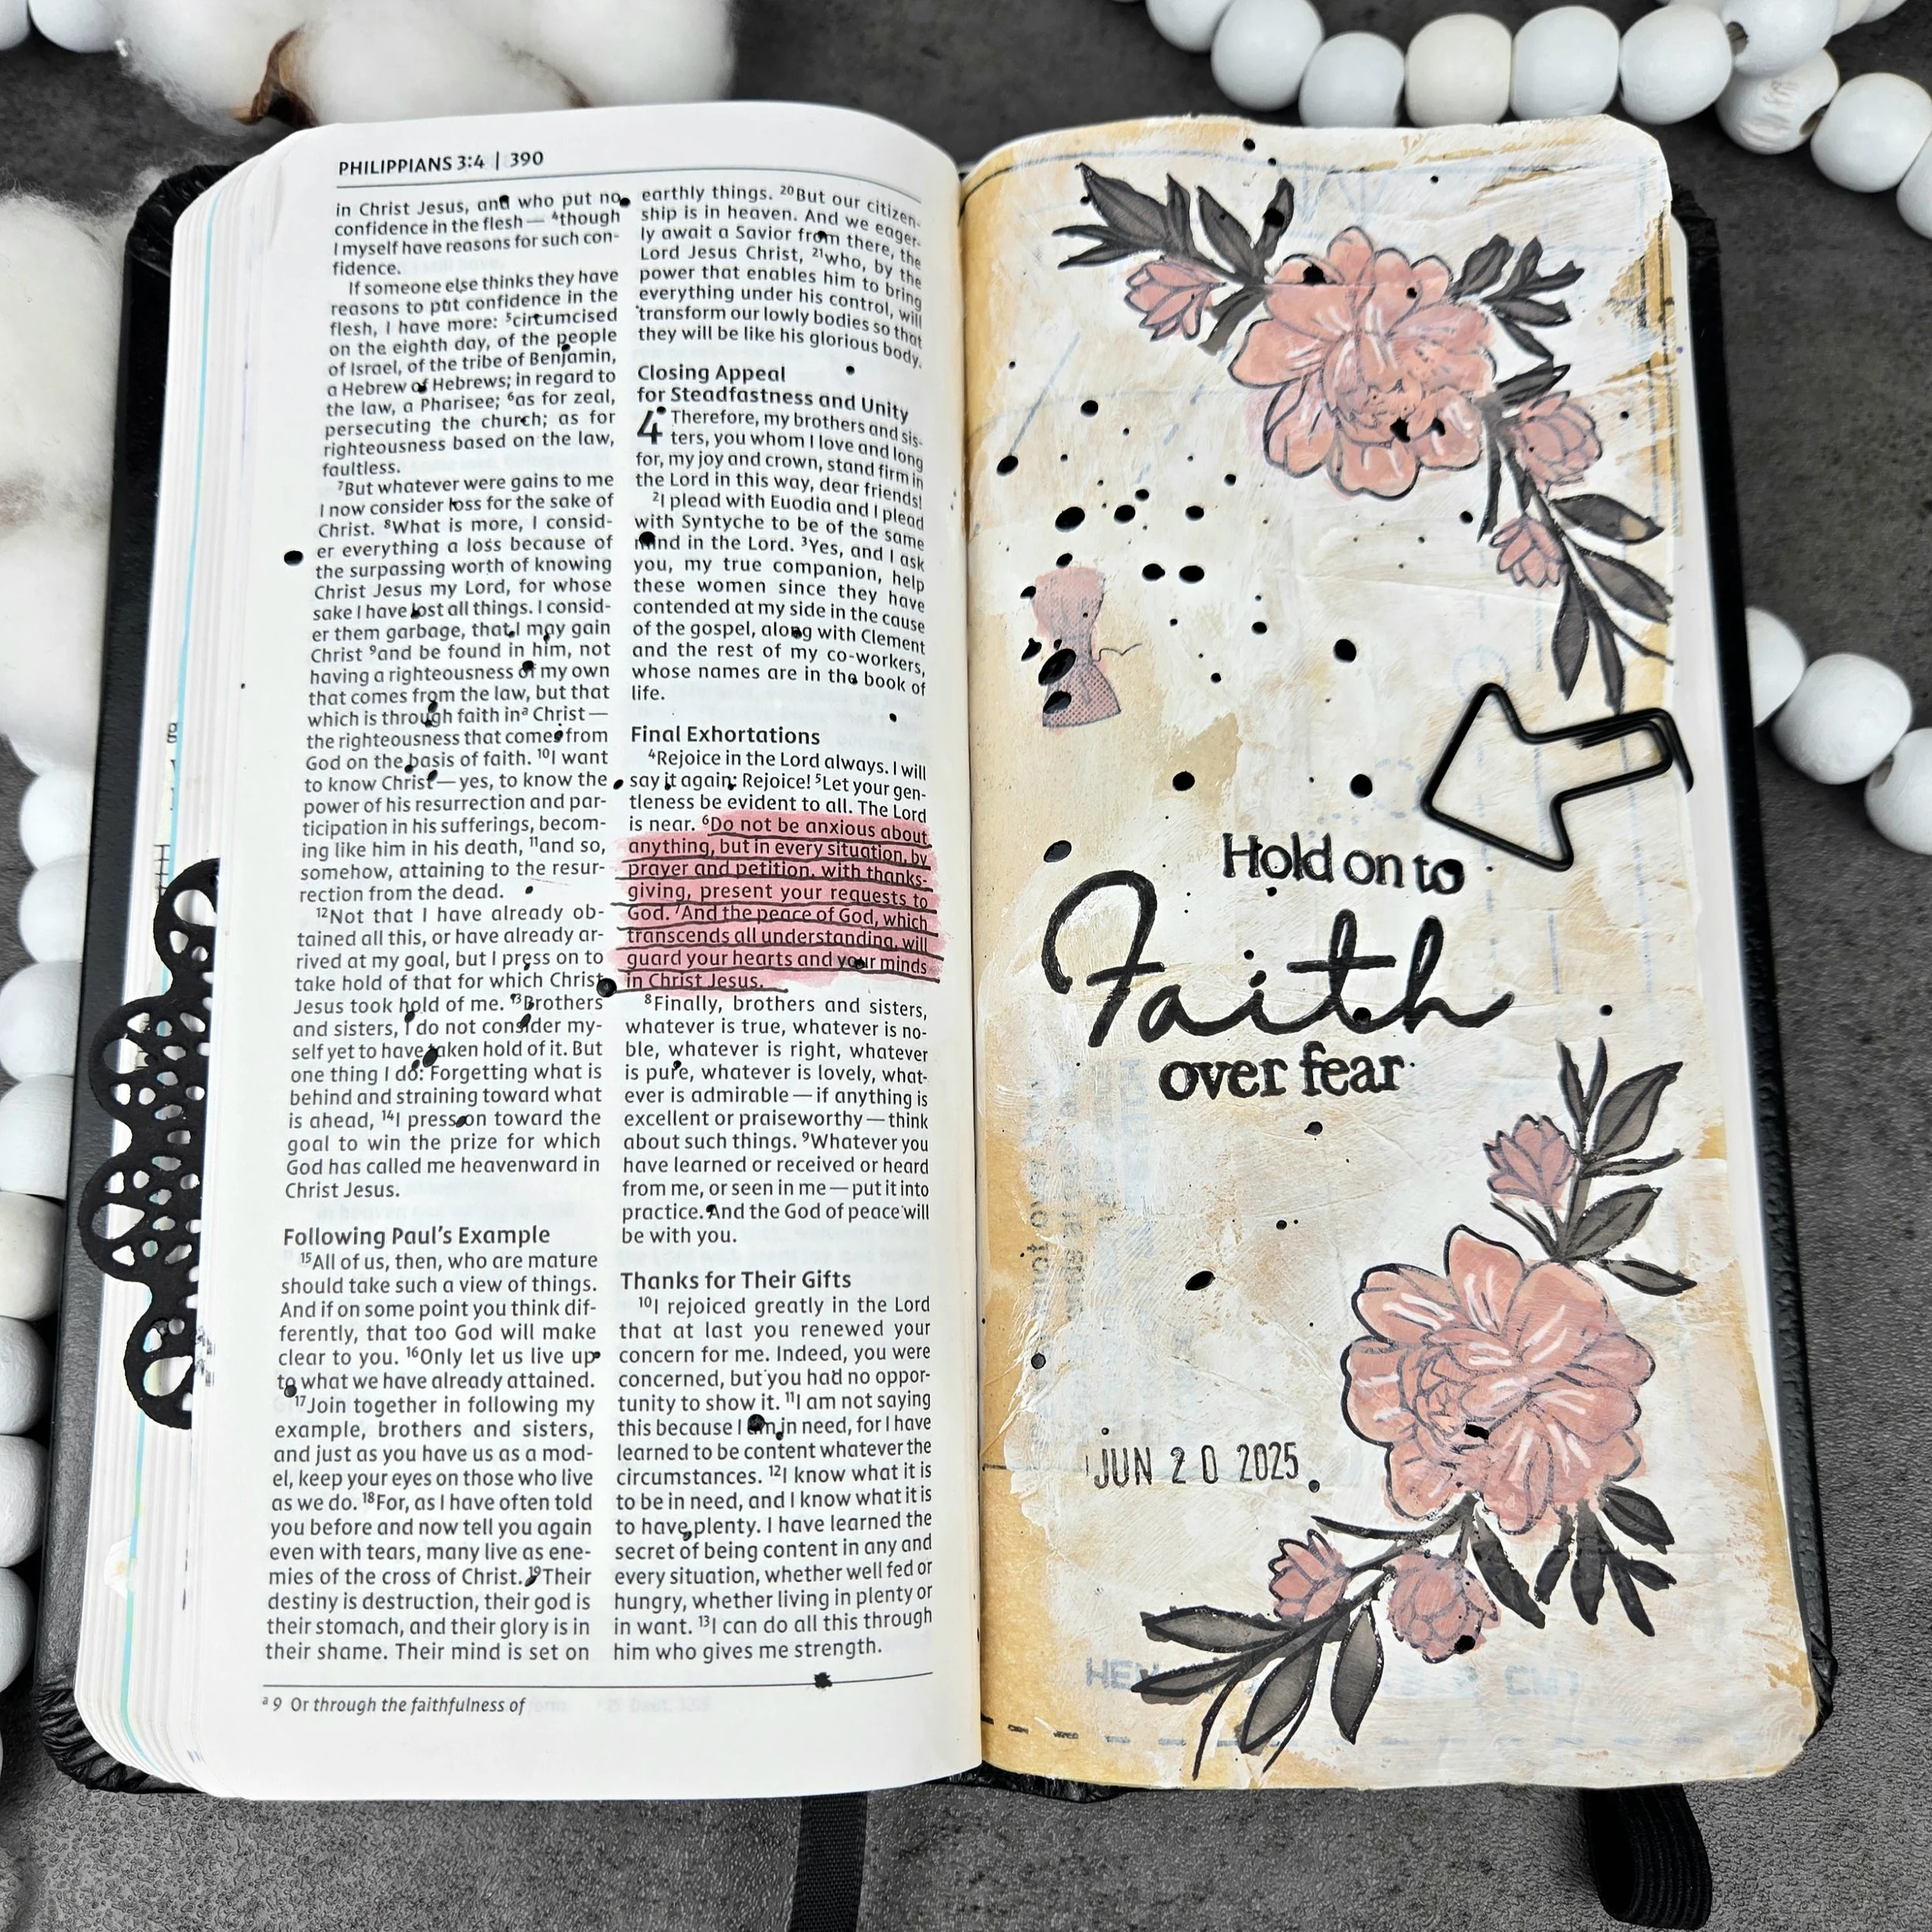 PHILIPPIANS 3:4 | 390
in Christ Jesus, and who put no
confidence in the flesh — ⁴though
I myself have reasons for such con-
fidence.
If someone else thinks they have
reasons to put confidence in the
flesh, I have more: ⁵circumcised
on the eighth day, of the people
of Israel, of the tribe of Benjamin,
a Hebrew of Hebrews; in regard to
the law, a Pharisee; ⁶as for zeal,
persecuting the church; as for
righteousness based on the law,
faultless.
⁷But whatever were gains to me
I now consider loss for the sake of
Christ. ⁸What is more, I consid-
er everything a loss because of
the surpassing worth of knowing
Christ Jesus my Lord, for whose
sake I have lost all things. I consid-
er them garbage, that I may gain
Christ ⁹and be found in him, not
having a righteousness of my own
that comes from the law, but that
which is through faith inᵃ Christ —
the righteousness that comes from
God on the basis of faith. ¹⁰I want
to know Christ — yes, to know the
power of his resurrection and par-
ticipation in his sufferings, becom-
ing like him in his death, ¹¹and so,
somehow, attaining to the resur-
rection from the dead.
¹²Not that I have already ob-
tained all this, or have already ar-
rived at my goal, but I press on to
take hold of that for which Christ
Jesus took hold of me. ¹³Brothers
and sisters, I do not consider my-
self yet to have taken hold of it. But
one thing I do: Forgetting what is
behind and straining toward what
is ahead, ¹⁴I press on toward the
goal to win the prize for which
God has called me heavenward in
Christ Jesus.
Following Paul's Example
¹⁵All of us, then, who are mature
should take such a view of things.
And if on some point you think dif-
ferently, that too God will make
clear to you. ¹⁶Only let us live up
to what we have already attained.
¹⁷Join together in following my
example, brothers and sisters,
and just as you have us as a mod-
el, keep your eyes on those who live
as we do. ¹⁸For, as I have often told
you before and now tell you again
even with tears, many live as ene-
mies of the cross of Christ. ¹⁹Their
destiny is destruction, their god is
their stomach, and their glory is in
their shame. Their mind is set on
earthly things. ²⁰But our citizen-
ship is in heaven. And we eager-
ly await a Savior from there, the
Lord Jesus Christ, ²¹who, by the
power that enables him to bring
everything under his control, will
transform our lowly bodies so that
they will be like his glorious body.
Closing Appeal
for Steadfastness and Unity
4 Therefore, my brothers and sis-
ters, you whom I love and long
for, my joy and crown, stand firm in
the Lord in this way, dear friends!
²I plead with Euodia and I plead
with Syntyche to be of the same
mind in the Lord. ³Yes, and I ask
you, my true companion, help
these women since they have
contended at my side in the cause
of the gospel, along with Clement
and the rest of my co-workers,
whose names are in the book of
life.
Final Exhortations
⁴Rejoice in the Lord always. I will
say it again: Rejoice! ⁵Let your gen-
tleness be evident to all. The Lord
is near. ⁶Do not be anxious about
anything, but in every situation, by
prayer and petition, with thanks-
giving, present your requests to
God. ⁷And the peace of God, which
transcends all understanding, will
guard your hearts and your minds
in Christ Jesus.
⁸Finally, brothers and sisters,
whatever is true, whatever is no-
ble, whatever is right, whatever
is pure, whatever is lovely, what-
ever is admirable — if anything is
excellent or praiseworthy — think
about such things. ⁹Whatever you
have learned or received or heard
from me, or seen in me — put it into
practice. And the God of peace will
be with you.
Thanks for Their Gifts
¹⁰I rejoiced greatly in the Lord
that at last you renewed your
concern for me. Indeed, you were
concerned, but you had no oppor-
tunity to show it. ¹¹I am not saying
this because I am in need, for I have
learned to be content whatever the
circumstances. ¹²I know what it is
to be in need, and I know what it is
to have plenty. I have learned the
secret of being content in any and
every situation, whether well fed or
hungry, whether living in plenty or
in want. ¹³I can do all this through
him who gives me strength.
ᵃ 9 Or through the faithfulness of
Hold on to
Faith
over fear
JUN 20 2025